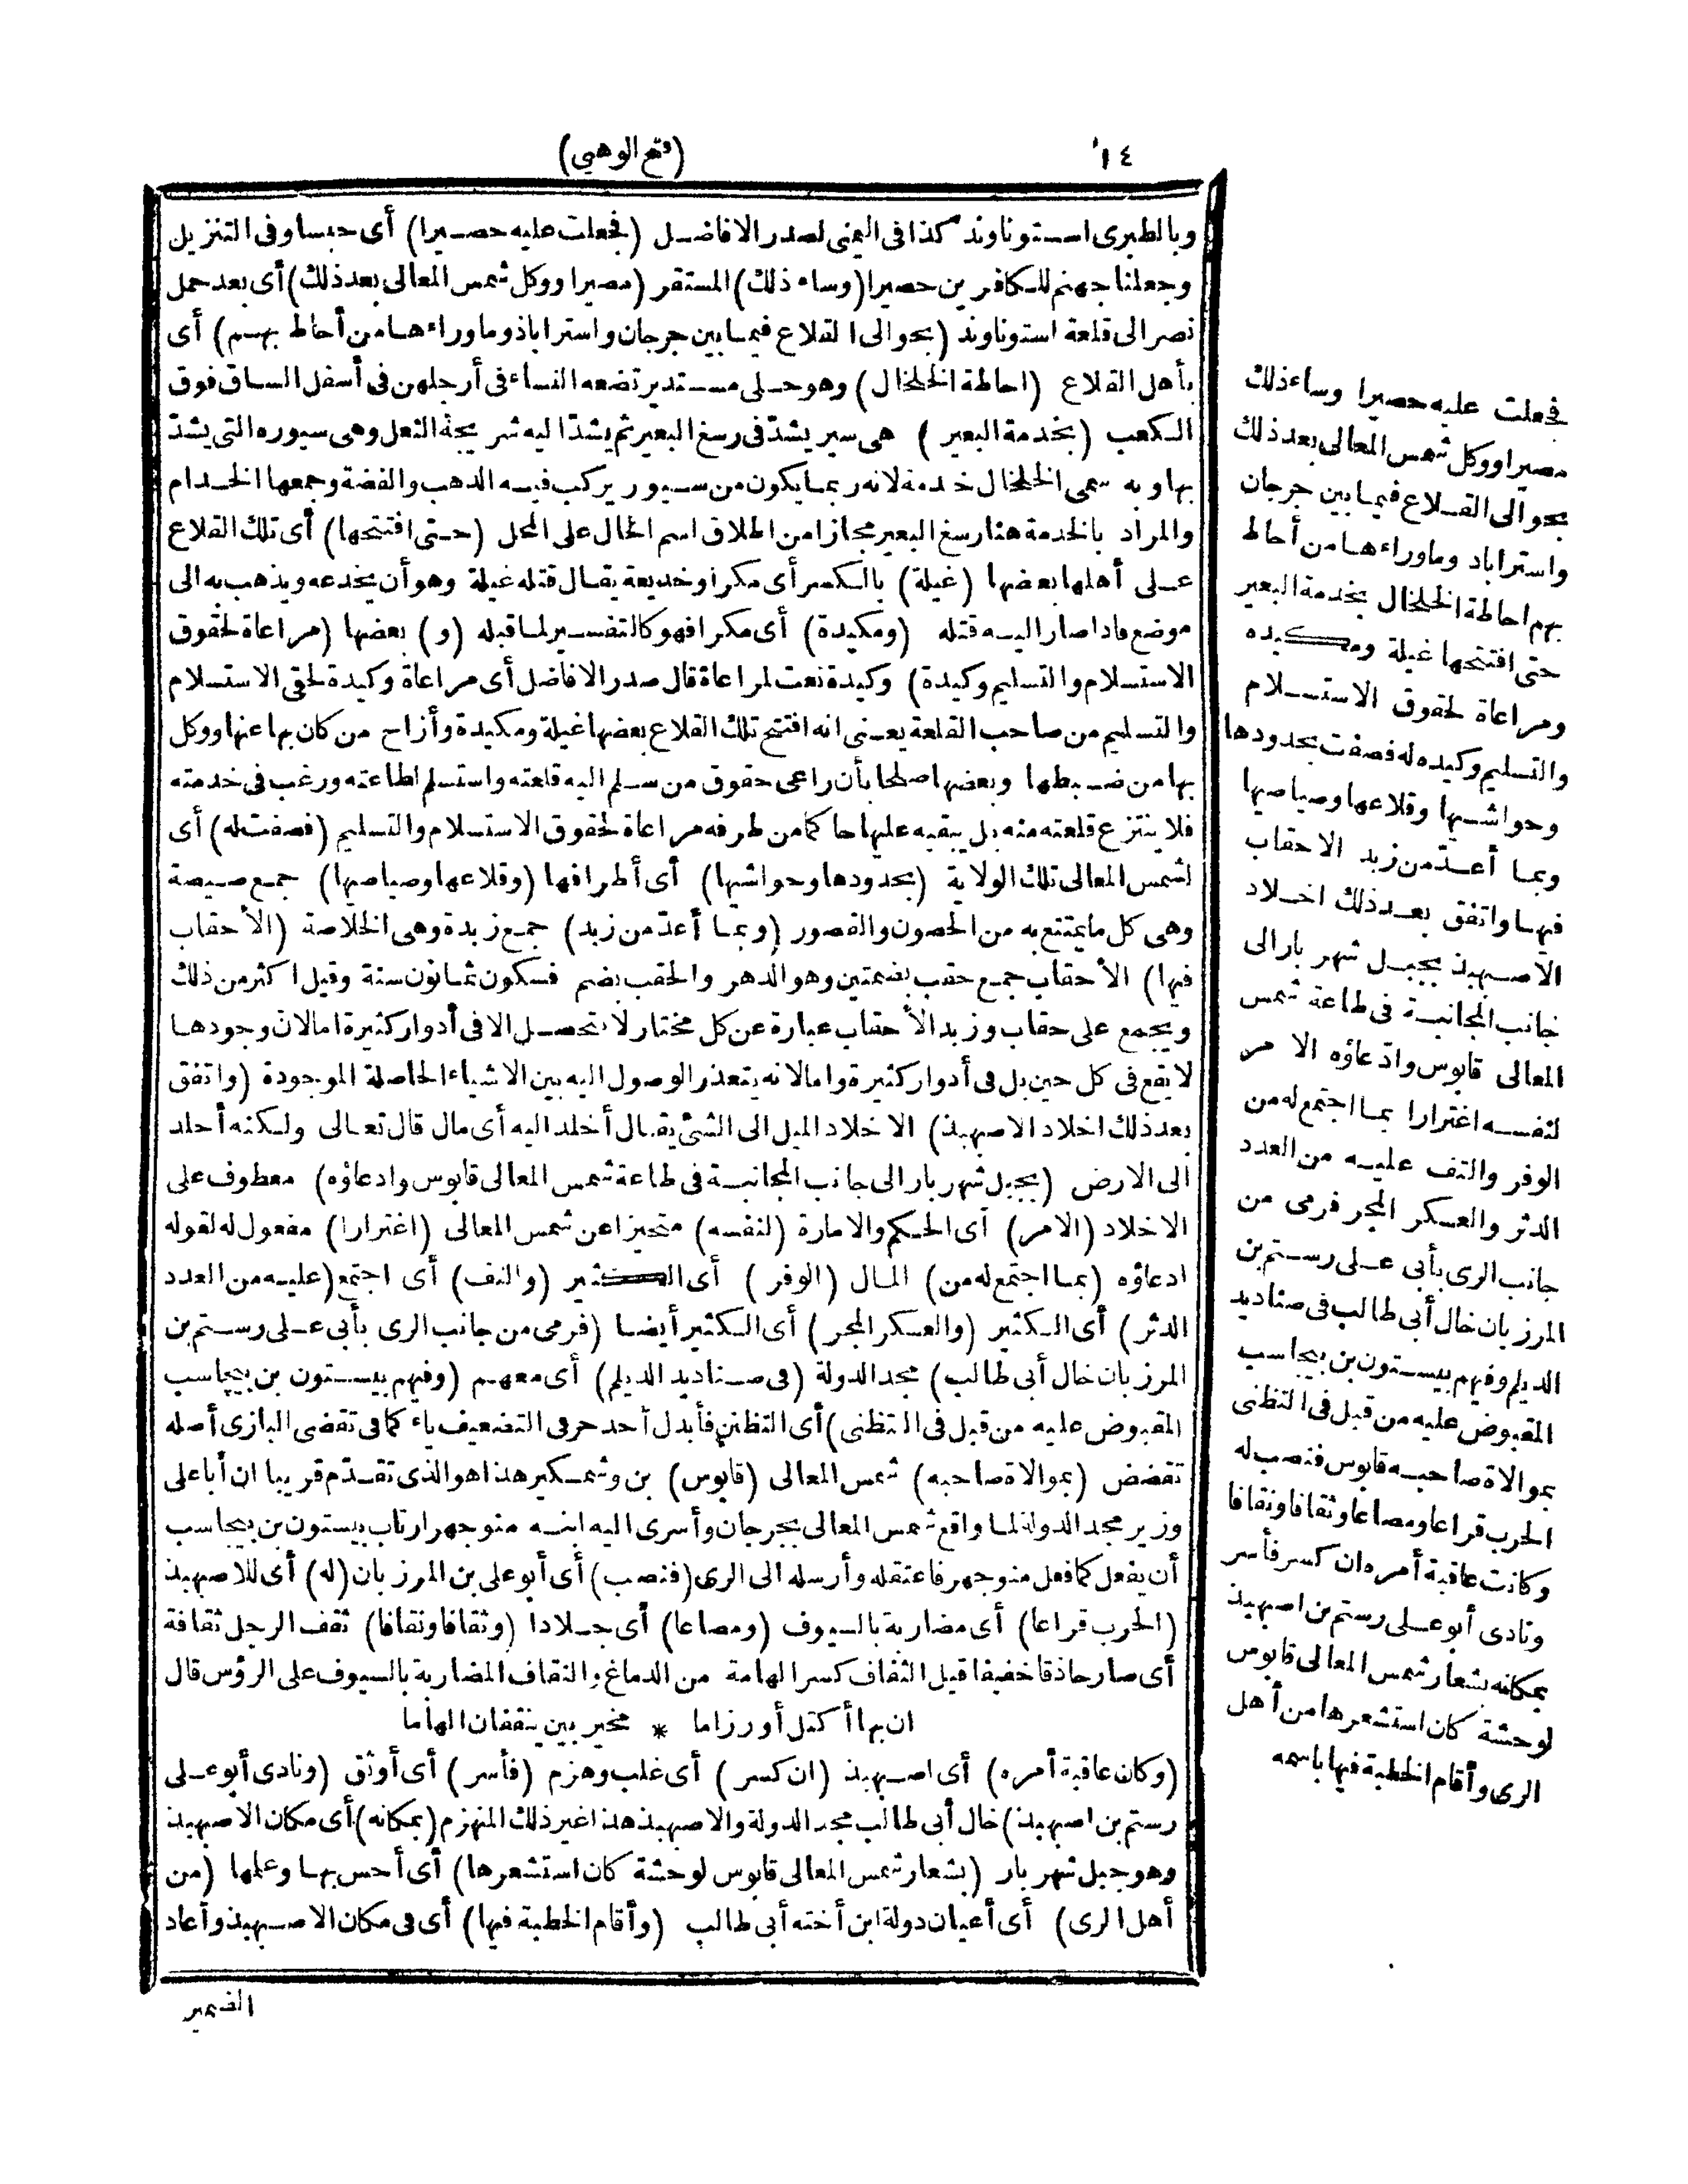 ١٤
(فتح الوهبي)
وبالطبرى استوناوند كذا فى اليمنى لصدر الافاضل (فجعلت عليه حصيرا) أى حبسا وفى التنزيل
وجعلنا جهنم للكافرين حصيرا (وساء ذلك) المستقر (مصيرا ووكل شمس المعالى بعد ذلك) أى بعد حمل
نصر الى قلعة استوناوند (بحوالى القلاع فيما بين جرجان واستراباذ وما وراءها من أحاط بهم) أى
بأهل القلاع (احاطة الخلخال) وهو حلى مستدير تضعه النساء فى أرجلهن فى أسفل الساق فوق
الكعب (بخدمة البعير) هى سير يشدّ فى رسغ البعير ثم يشدّ اليه شريحة النعل وهى سيوره التى يشدّ
بها وبه سمى الخلخال خدمة لانه ربما يكون من سيور يركب فيه الذهب والفضة وجمعها الخدام
والمراد بالخدمة هنا رسغ البعير مجازا من اطلاق اسم الحال على المحل (حتى افتتحها) أى تلك القلاع
على أهلها بعضها (غيلة) بالكسر أى مكرا وخديعة يقال قتله غيلة وهو أن يخدعه ويذهب به الى
موضع فاذا صار اليه قتله (ومكيدة) أى مكرا فهو كالتفسير لما قبله (و) بعضها (مراعاة لحقوق
الاستسلام والتسليم وكيدة) وكيدة نعت لمراعاة قال صدر الافاضل أى مراعاة وكيدة لحق الاستسلام
والتسليم من صاحب القلعة يعنى انه افتتح تلك القلاع بعضها غيلة ومكيدة وأزاح من كان بها عنها ووكل
بها من ضبطها وبعضها صلحا بأن راعى حقوق من سلم اليه قلعته واستسلم لطاعته ورغب فى خدمته
فلا ينتزع قلعته منه بل يبقيه عليها حاكما من طرفه مراعاة لحقوق الاستسلام والتسليم (فصفت له) أى
لشمس المعالى تلك الولاية (بحدودها وحواشيها) أى أطرافها (وقلاعها وصياصيها) جمع صيصة
وهى كل ما يمتنع به من الحصون والقصور (وبما أعدّ من زبد) جمع زبدة وهى الخلاصة (الأحقاب
فيها) الأحقاب جمع حقب بضمتين وهو الدهر والحقب بضم فسكون ثمانون سنة وقيل اكثر من ذلك
ويجمع على حقاب وزبد الأحقاب عبارة عن كل مختار لا يتحصل الا فى أدوار كثيرة اما لان وجودها
لا يقع فى كل حين بل فى أدوار كثيرة واما لانه يتعذر الوصول اليه بين الاشياء الحاصلة الموجودة (واتفق
بعد ذلك اخلاد الاصبهبذ) الاخلاد الميل الى الشئ يقال أخلد اليه أى مال قال تعالى ولكنه أخلد
الى الارض (بجبل شهريار الى جانب المجانبة فى طاعة شمس المعالى قابوس وادعاؤه) معطوف على
الاخلاد (الامر) أى الحكم والامارة (لنفسه) متحيزا عن شمس المعالى (اغترارا) مفعول له لقوله
ادعاؤه (بما اجتمع له من) المال (الوفر) أى الكثير (والتف) أى اجتمع (عليه من العدد
الدثر) أى الكثير (والعسكر المجر) أى الكثير أيضا (فرمى من جانب الرى بأبى على رستم بن
المرزبان خال أبى طالب) مجد الدولة (فى صناديد الديلم) أى معهم (وفيهم بيستون بن بيجاسب
المقبوض عليه من قبل فى التظنى) أى التظنن فأبدل أحد حرفى التضعيف ياء كما فى تقضى البازى أصله
تقضض (بموالاة صاحبه) شمس المعالى (قابوس) بن وشمكير هذا هو الذى تقدّم قريبا ان أبا على
وزير مجد الدولة لما واقع شمس المعالى بجرجان وأسرى اليه ابنه منوجهر ارتاب ببيستون بن بيجاسب
أن يفعل كما فعل منوجهر فاعتقله وأرسله الى الرى (فنصب) أى أبو على بن المرزبان (له) أى للاصبهبذ
(الحرب قراعا) أى مضاربة بالسيوف (ومصاعا) أى جلادا (وثقافا ونقافا) ثقف الرجل ثقافة
أى صار حاذقا خفيفا قيل الثقاف كسر الهامة من الدماغ والنقاف المضاربة بالسيوف على الرؤس قال
ان بها أكتل أو رزاما * خيربين ينقفان الهاما
(وكان عاقبة أمره) أى اصبهبذ (ان كسر) أى غلب وهزم (فأسر) أى أوثق (ونادى أبو على
رستم بن اصبهبذ) خال أبى طالب مجد الدولة والاصبهبذ هذا غير ذلك المنهزم (بمكانه) أى مكان الاصبهبذ
وهو جبل شهريار (بشعار شمس المعالى قابوس لوحشة كان استشعرها) أى أحس بها وعلمها (من
أهل الرى) أى أعيان دولة ابن أخته أبى طالب (وأقام الخطبة فيها) أى فى مكان الاصبهبذ وأعاد
الضمير
فجعلت عليه حصيرا وساء ذلك
مصيرا ووكل شمس المعالى بعد ذلك
بحوالى القلاع فيما بين جرجان
واستراباد وما وراءها من أحاط
بهم احاطة الخلخال بخدمة البعير
حتى افتتحها غيلة ومكيده
ومراعاة لحقوق الاستسلام
والتسليم وكيده له فصفت بحدودها
وحواشيها وقلاعها وصياصيها
وبما أعدّ من زبد الاحقاب
فيها واتفق بعد ذلك اخلاد
الاصبهبذ بجبل شهريار الى
جانب المجانبة فى طاعة شمس
المعالى قابوس وادّعاؤه الامر
لنفسه اغترارا بما اجتمع له من
الوفر والتف عليه من العدد
الدثر والعسكر المجر فرمى من
جانب الرى بأبى على رستم بن
المرزبان خال أبى طالب فى صناديد
الديلم وفيهم بيستون بن بيجاسب
المقبوض عليه من قبل فى التظنى
بموالاة صاحبه قابوس فنصب له
الحرب قراعا ومصاعا وثقافا ونقافا
وكانت عاقبة أمره ان كسر فأسر
ونادى أبو على رستم بن اصبهبذ
بمكانه بشعار شمس المعالى قابوس
لوحشة كان استشعرها من أهل
الرى وأقام الخطبة فيها باسمه